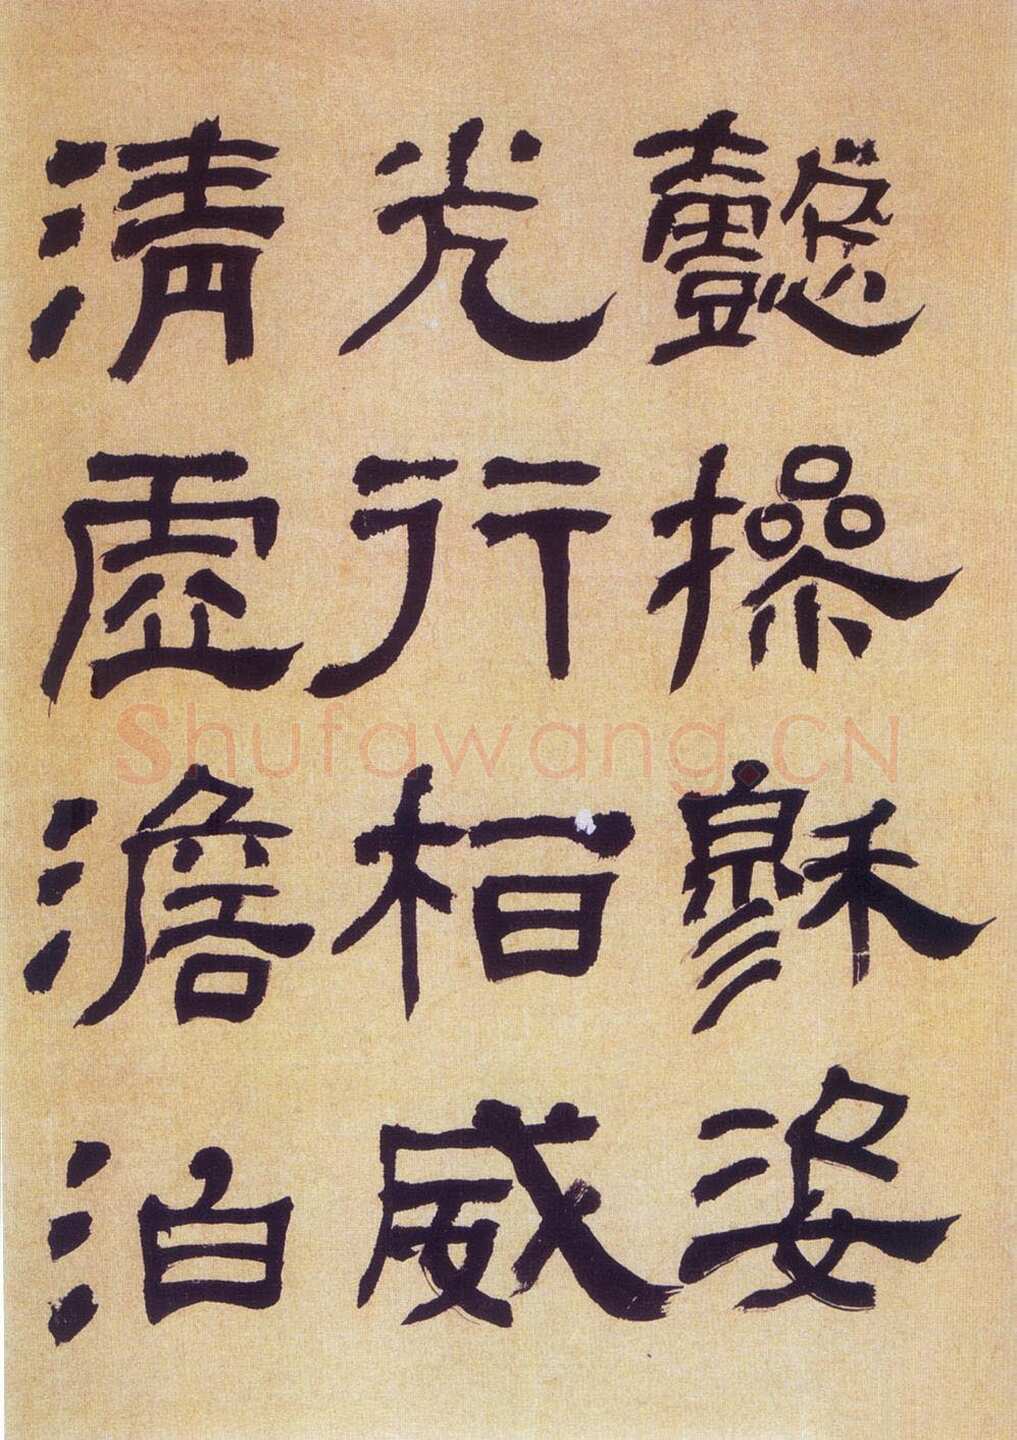 懿操穆姿
光行相威
清虚澹泊
Shufawang.CN